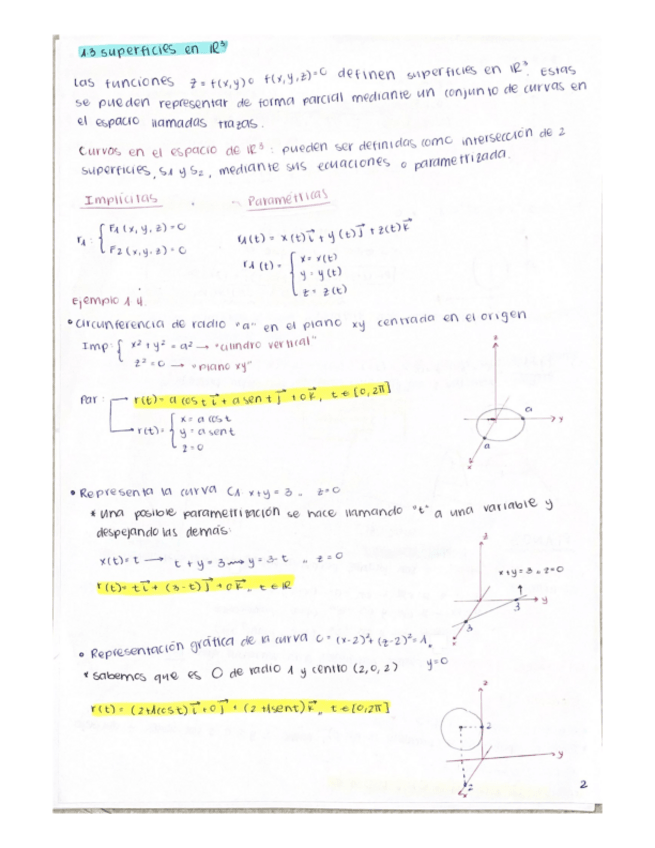 1.3 superficies en ℝ³
Las funciones z = f(x,y) o f(x,y,z)=0 definen superficies en ℝ³. Estas
se pueden representar de forma parcial mediante un conjunto de curvas en
el espacio llamadas trazas.
Curvas en el espacio de ℝ³: pueden ser definidas como intersección de 2
superficies, S1 y S2, mediante sus ecuaciones o parametrizada.
Implícitas Paramétricas
r1: { F1(x,y,z)=0 r1(t) = x(t)i⃗ + y(t)j⃗ + z(t)k⃗
F2(x,y,z)=0 r1(t) = { x = x(t)
y = y(t)
z = z(t)
Ejemplo 1.4.
• Circunferencia de radio "a" en el plano xy centrada en el origen
Imp: { x² + y² = a² → "cilindro vertical"
z² = 0 → "plano xy"
Par: r(t) = a cost i⃗ + a sent j⃗ + 0k⃗, t ∈ [0,2π]
r(t) = { x = a cost
y = a sent
z = 0
z
a
y
a
x
• Representa la curva C1 x+y = 3 ,, z=0
* una posible parametrización se hace llamando "t" a una variable y
despejando las demás:
x(t)=t → t + y = 3 → y = 3-t ,, z = 0
r(t) = t i⃗ + (3-t) j⃗ + 0 k⃗ ,, t ∈ ℝ
z
x+y=3 ,, z=0
y
3
3
x
• Representación gráfica de la curva C = (x-2)² + (z-2)² = 1 ,,
y=0
* sabemos que es O de radio 1 y centro (2,0,2)
r(t) = (2+1cost) i⃗ + 0 j⃗ + (2+1sent) k⃗ ,, t ∈ [0,2π]
z
2
y
2
x
2